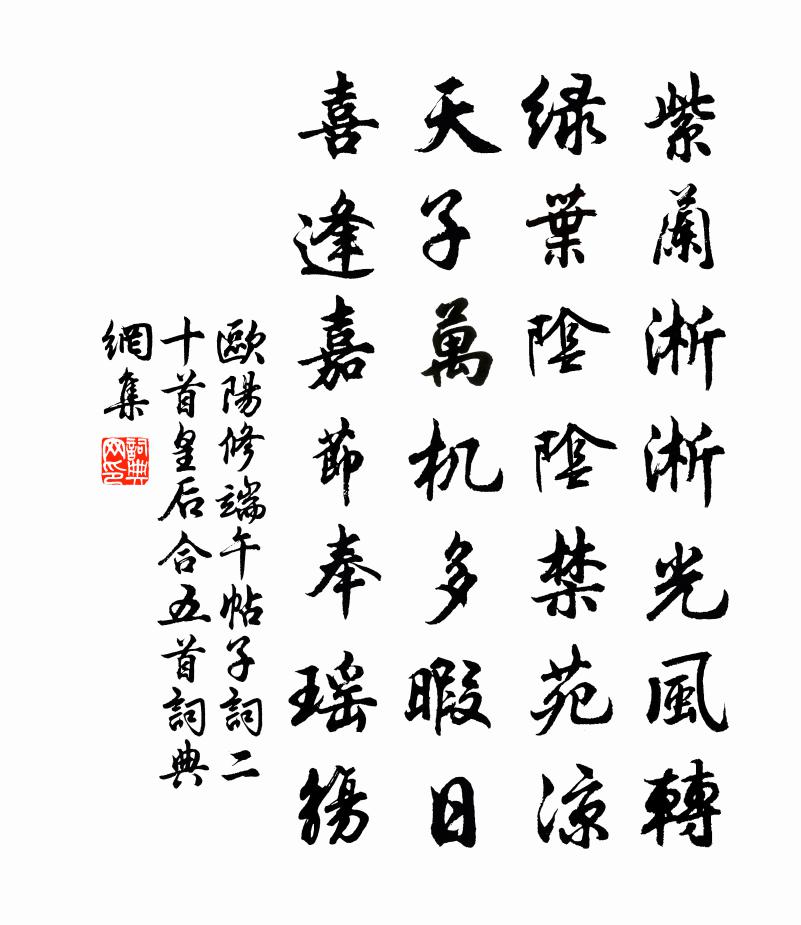 紫蘭淅淅光風轉
绿葉陰陰禁苑凉
天子萬机多暇日
喜逢嘉節奉瑶觴
歐陽修端午帖子詞二
十首皇后合五首詞典
網集
詞典
网印